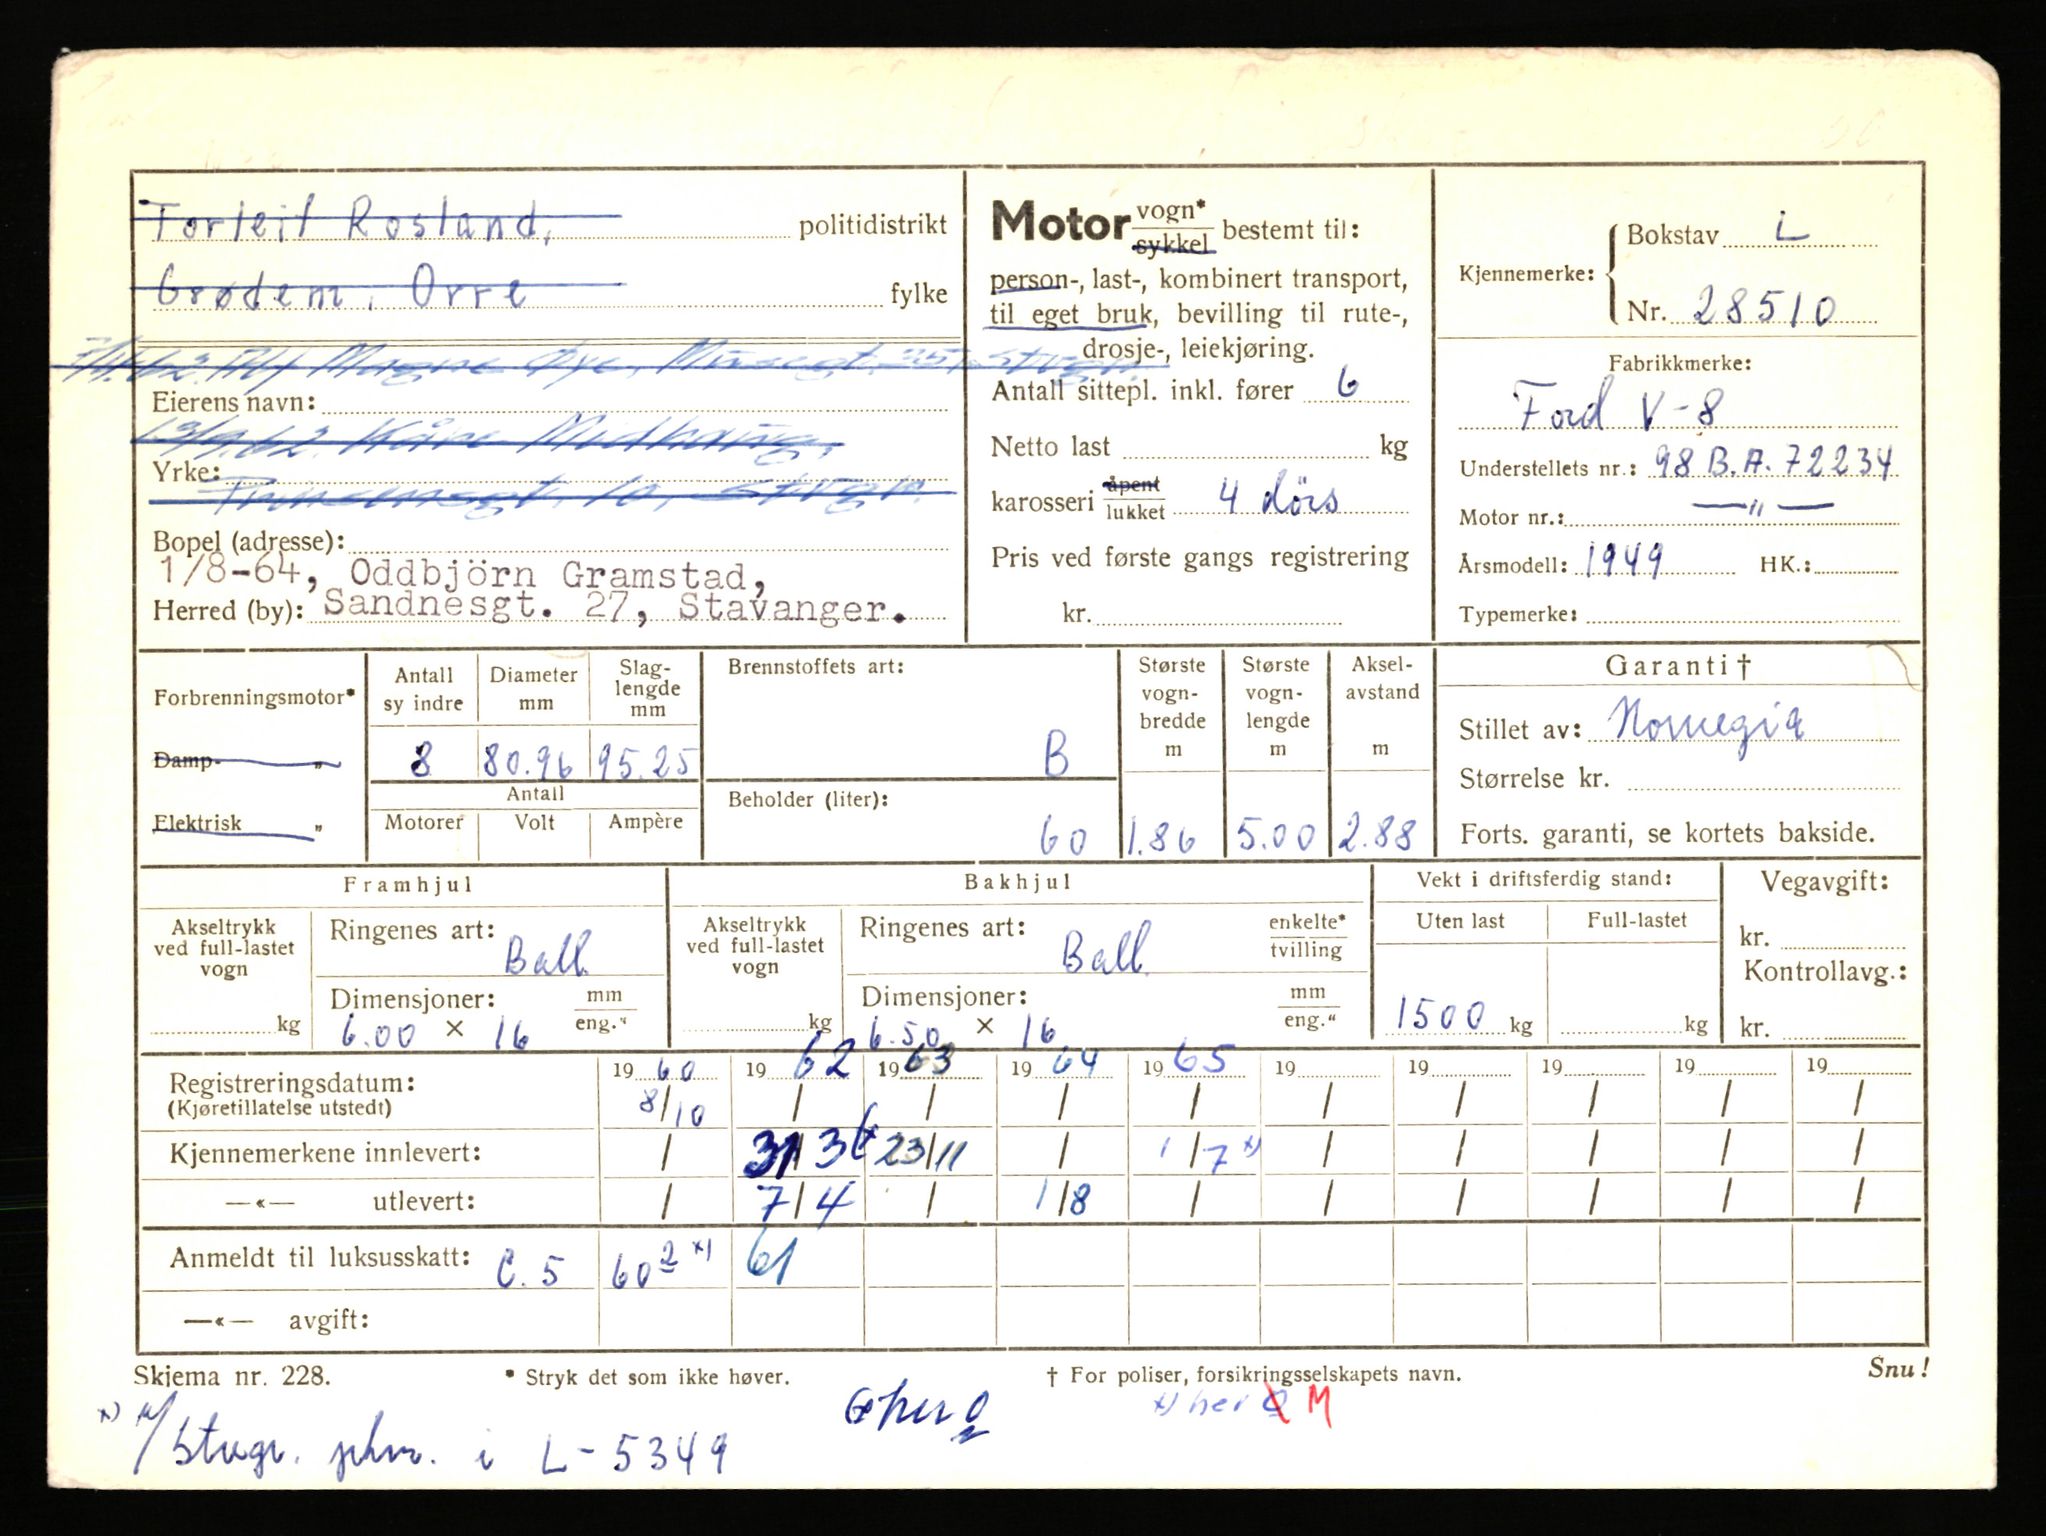 Torleif Rosland, politidistrikt
Grødem, Orre fylke
7/4.62. Alf Magne Øye, Musegt. 25, Stvgr.
Eierens navn:
13/9.62. Kåre Midthaug,
Yrke:
Prinsensgt. 10, Stvgr.
Bopel (adresse):
1/8-64, Oddbjörn Gramstad,
Herred (by): Sandnesgt. 27, Stavanger.
Motor vogn* sykkel bestemt til:
person-, last-, kombinert transport,
til eget bruk, bevilling til rute-,
drosje-, leiekjøring.
Antall sittepl. inkl. fører 6
Netto last kg
karosseri åpent lukket 4 dörs
Pris ved første gangs registrering
kr.
Kjennemerke: Bokstav L
Nr. 28510
Fabrikkmerke:
Ford V-8
Understellets nr.: 98 B.A. 72234
Motor nr.: — " —
Årsmodell: 1949 HK.:
Typemerke:
Forbrenningsmotor*
Damp- "
Elektrisk "
Antall sy indre Diameter mm Slag- lengde mm
8 80.96 95.25
Antall
Motorer Volt Ampère
Brennstoffets art:
B
Beholder (liter):
60
Største vogn- bredde m
1.86
Største vogn- lengde m
5.00
Aksel- avstand m
2.88
Garanti †
Stillet av: Norwegia
Størrelse kr.
Forts. garanti, se kortets bakside.
Framhjul
Akseltrykk ved full-lastet vogn
kg
Ringenes art:
Ball.
Dimensjoner: mm eng."
6.00 × 16
Bakhjul
Akseltrykk ved full-lastet vogn
kg
Ringenes art: enkelte* tvilling
Ball.
Dimensjoner: mm eng."
6.50 × 16
Vekt i driftsferdig stand:
Uten last Full-lastet
1500 kg kg
Vegavgift:
kr.
Kontrollavg.:
kr.
Registreringsdatum: 19 60 19 62 19 63 19 64 19 65 19 19 19 19 19
(Kjøretillatelse utstedt) 8/10 / / / / / / / / /
Kjennemerkene innlevert: / 31/3 23/11 / 1/7 x) / / / / /
—«— utlevert: / 7/4 / 1/8 / / / / / /
Anmeldt til luksusskatt: C. 5 60 2 x) 61
—«— avgift:
Skjema nr. 228. * Stryk det som ikke høver. † For poliser, forsikringsselskapets navn. Snu!
x) her M
Stvgr. phr. i L-5349